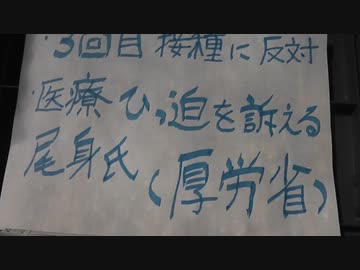 ・3回目 接種に反対
・医療ひっ迫を訴える
尾身氏(厚労省)